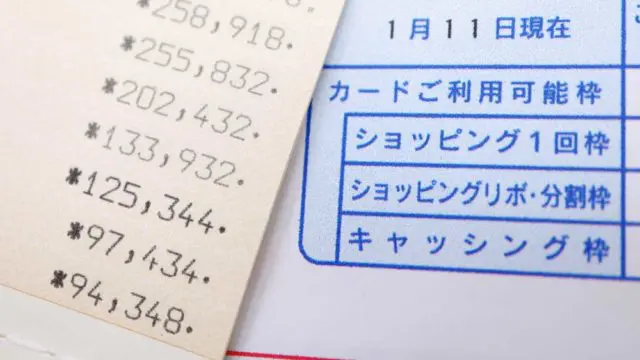 *258,918.
*255,832.
*202,432.
*133,932.
*125,344.
*97,434.
*94,348.
1月11日現在
カードご利用可能枠
ショッピング1回枠
ショッピングリボ・分割枠
キャッシング枠